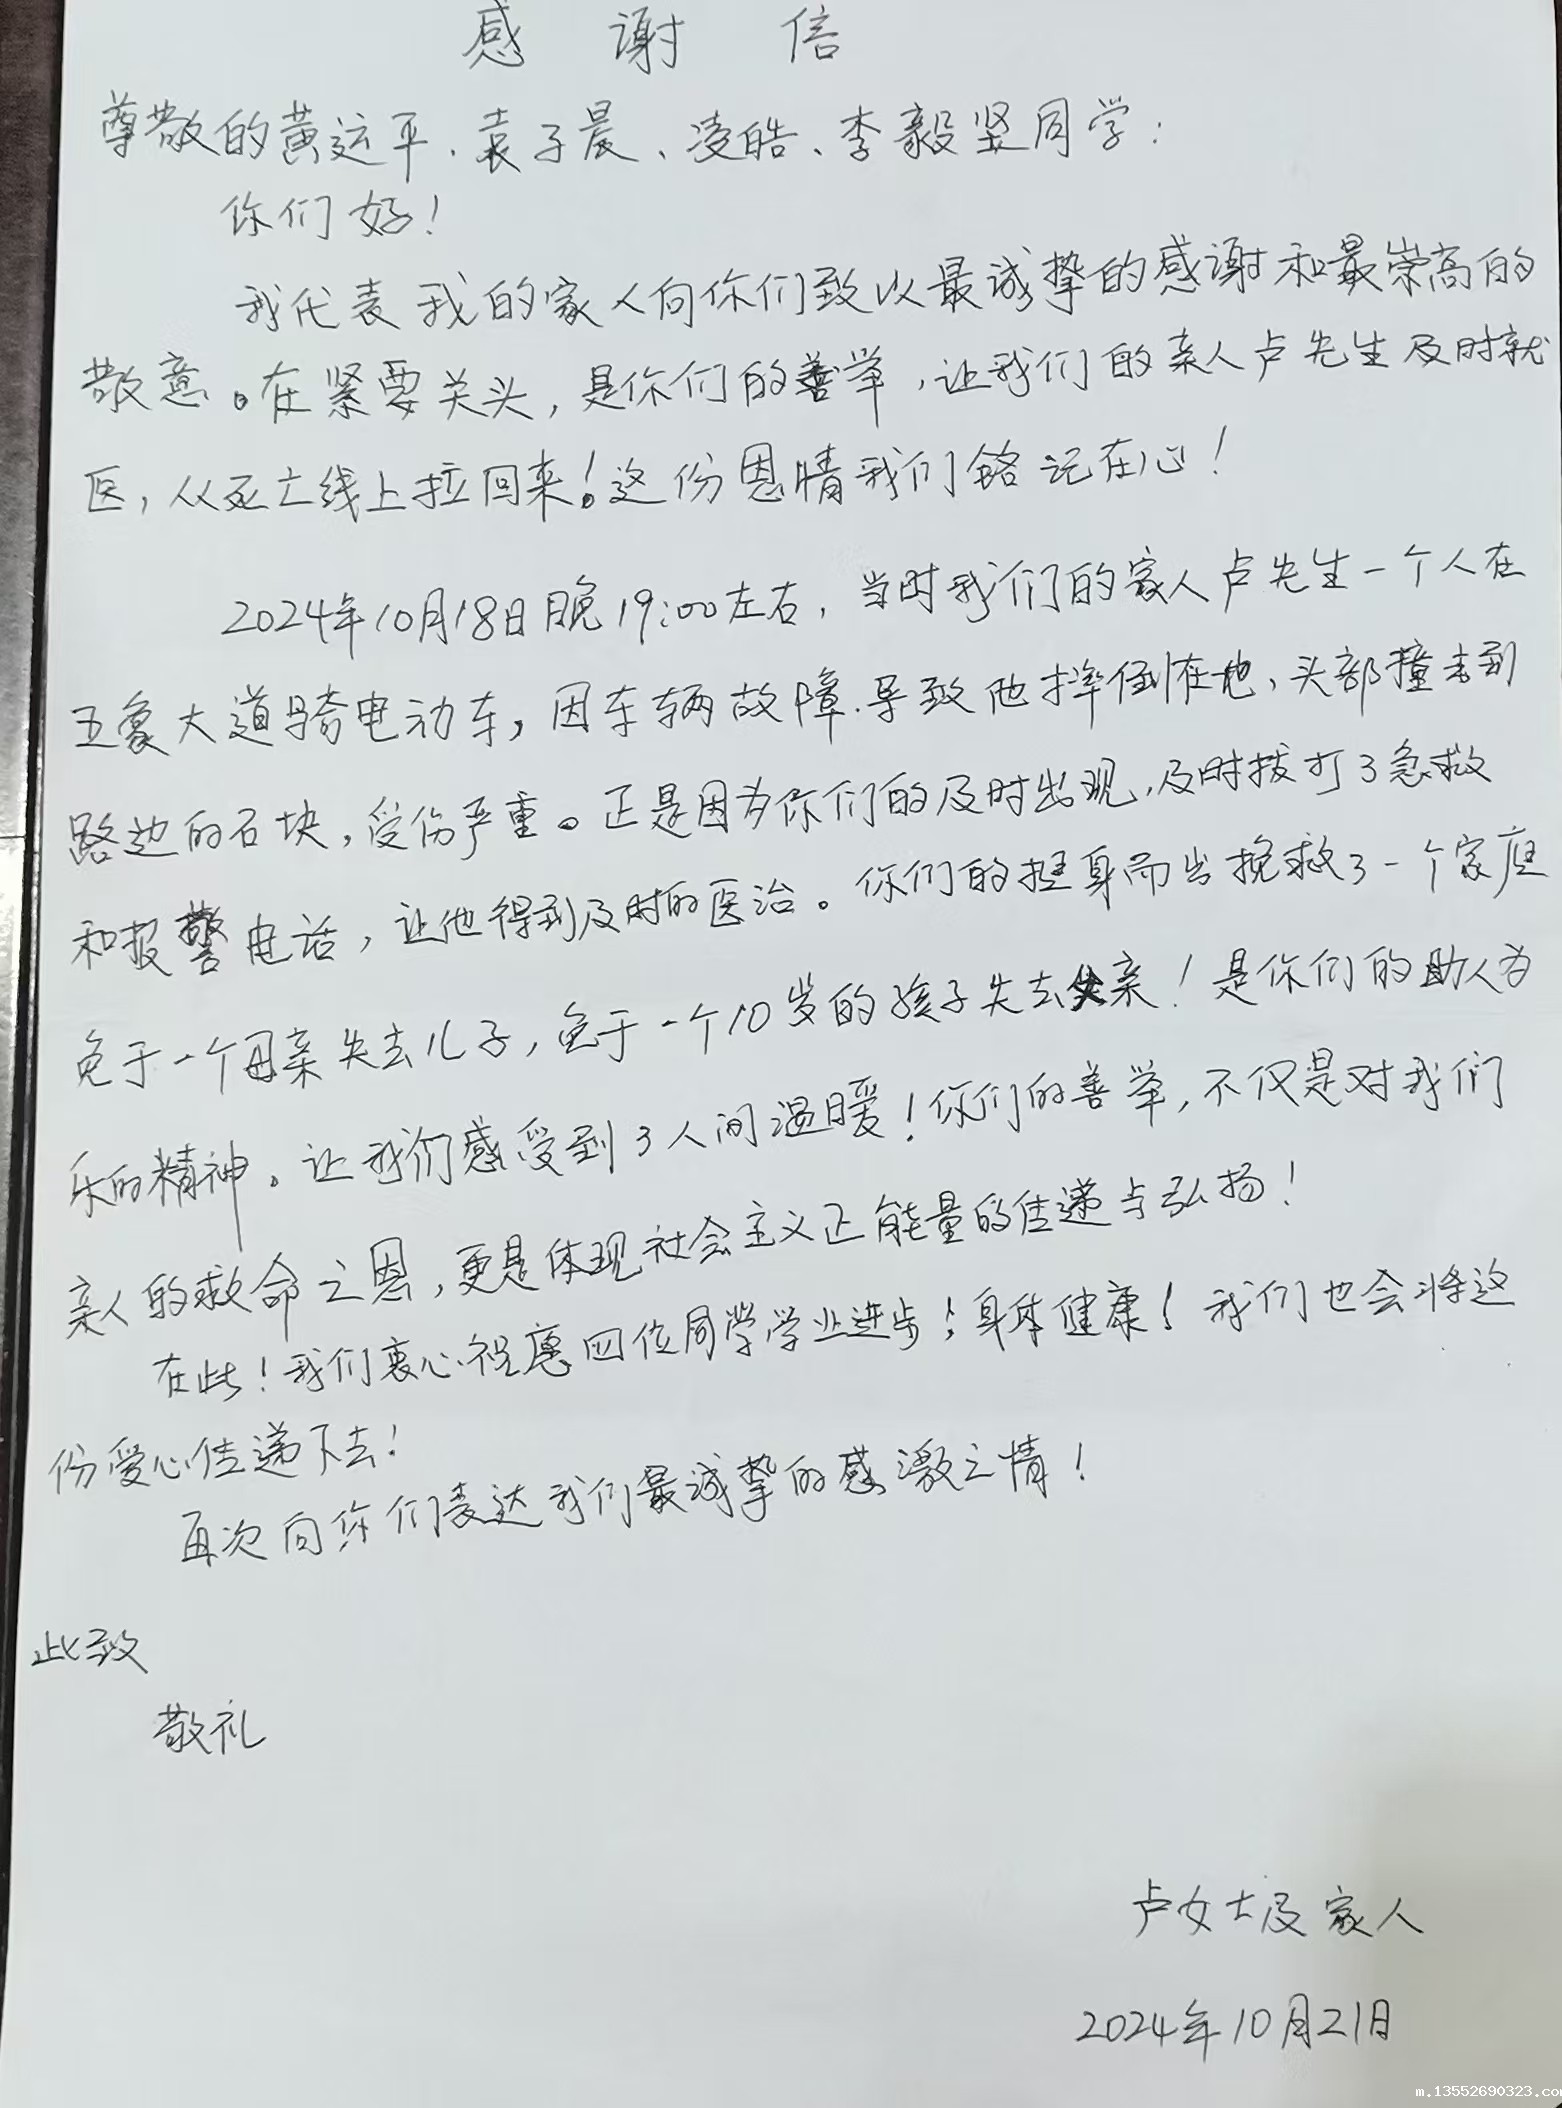 感谢信
尊敬的黄运平、袁子晨、凌皓、李毅坚同学：
你们好！
我代表我的家人向你们致以最诚挚的感谢和最崇高的
敬意。在紧要关头，是你们的善举，让我们的亲人卢先生及时就
医，从死亡线上拉回来！这份恩情我们铭记在心！
2024年10月18日晚19:00左右，当时我们的家人卢先生一个人在
五象大道骑电动车，因车辆故障.导致他摔倒在地、头部撞击到
路边的石块，受伤严重。正是因为你们的及时出现，及时拔打了急救
和报警电话，让他得到及时的医治。你们的挺身而出挽救了一个家庭
免于一个母亲失去儿子，免于一个10岁的孩子失去父亲！是你们的助人为
乐的精神。让我们感受到了人间温暖！你们的善举，不仅是对我们
亲人的救命之恩，更是体现社会主义正能量的传递与弘扬！
在此！我们衷心祝愿四位同学学业进步！身体健康！我们也会将这
份爱心传递下去！
再次向你们表达我们最诚挚的感激之情！
此致
敬礼
卢女士及家人
2024年10月21日
m.13552690323.com